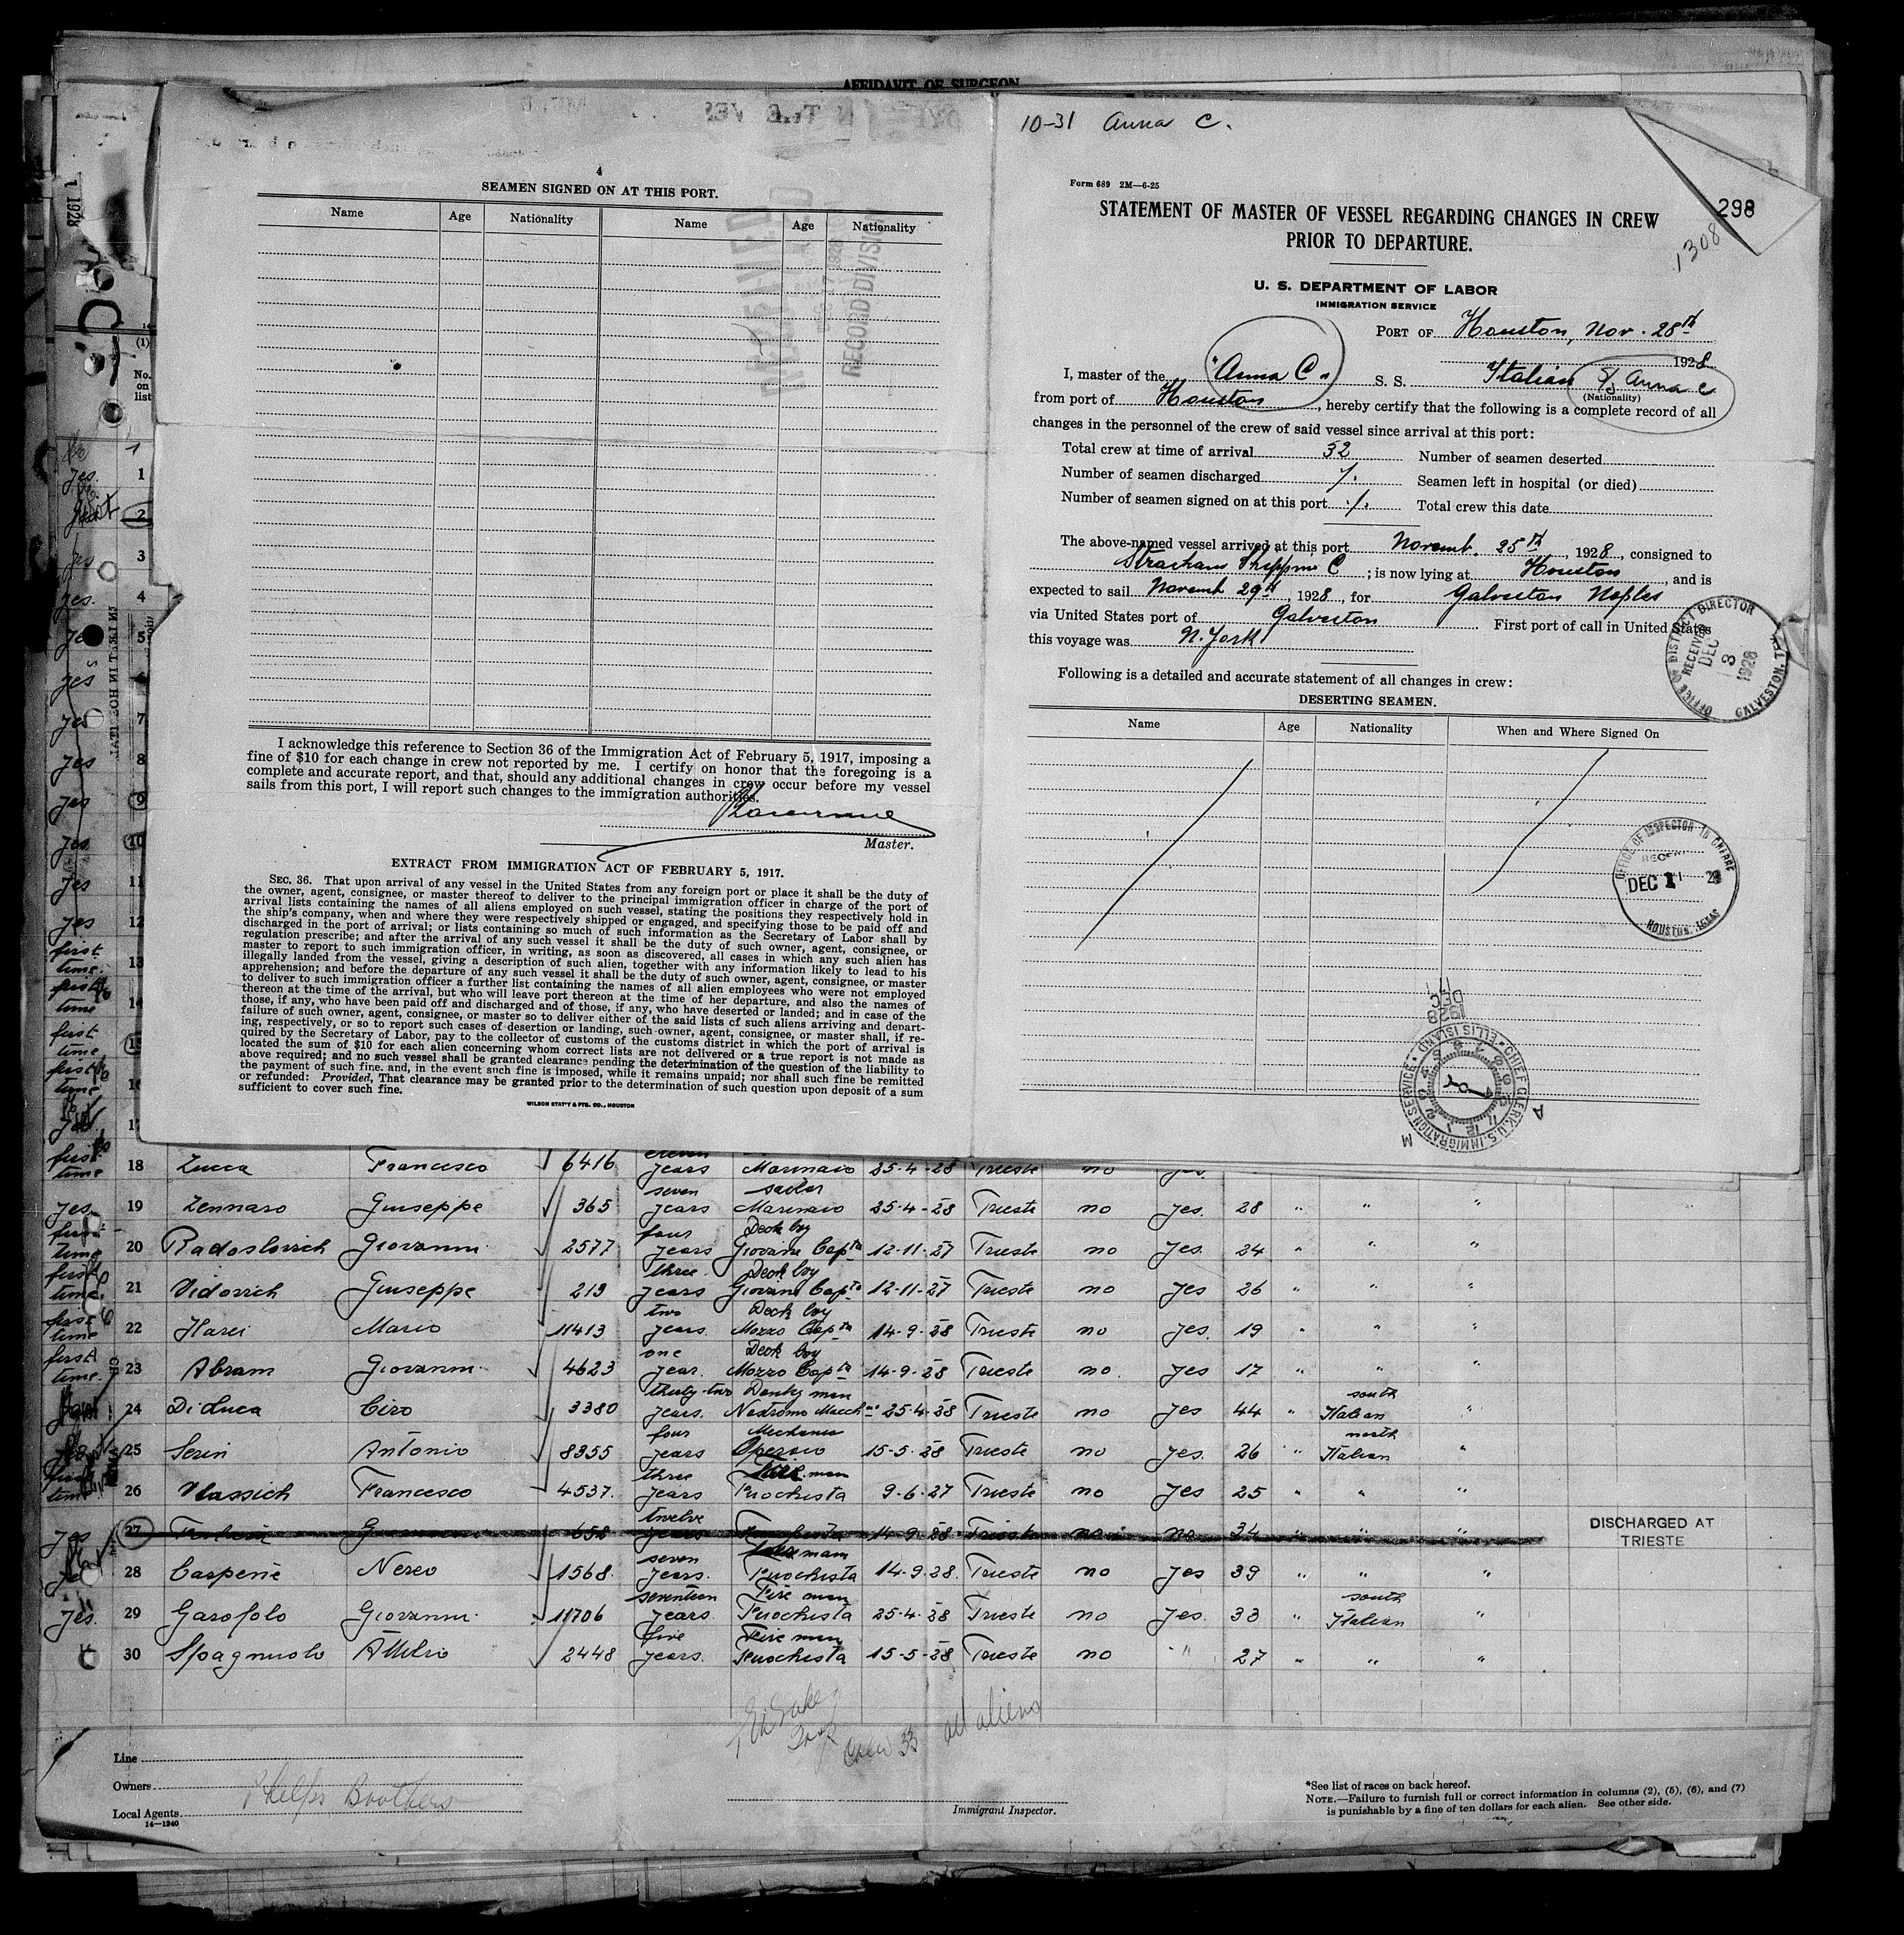 AFFIDAVIT OF SURGEON
4
SEAMEN SIGNED ON AT THIS PORT.
Name Age Nationality Name Age Nationality
RECORD DIVISION
I acknowledge this reference to Section 36 of the Immigration Act of February 5, 1917, imposing a
fine of $10 for each change in crew not reported by me. I certify on honor that the foregoing is a
complete and accurate report, and that, should any additional changes in crew occur before my vessel
sails from this port, I will report such changes to the immigration authorities.
Master.
EXTRACT FROM IMMIGRATION ACT OF FEBRUARY 5, 1917.
SEC. 36. That upon arrival of any vessel in the United States from any foreign port or place it shall be the duty of
the owner, agent, consignee, or master thereof to deliver to the principal immigration officer in charge of the port of
arrival lists containing the names of all aliens employed on such vessel, stating the positions they respectively hold in
the ship's company, when and where they were respectively shipped or engaged, and specifying those to be paid off and
discharged in the port of arrival; or lists containing so much of such information as the Secretary of Labor shall by
regulation prescribe; and after the arrival of any such vessel it shall be the duty of such owner, agent, consignee, or
master to report to such immigration officer, in writing, as soon as discovered, all cases in which any such alien has
illegally landed from the vessel, giving a description of such alien, together with any information likely to lead to his
apprehension; and before the departure of any such vessel it shall be the duty of such owner, agent, consignee, or master
to deliver to such immigration officer a further list containing the names of all alien employees who were not employed
thereon at the time of the arrival, but who will leave port thereon at the time of her departure, and also the names of
those, if any, who have been paid off and discharged and of those, if any, who have deserted or landed; and in case of the
failure of such owner, agent, consignee, or master so to deliver either of the said lists of such aliens arriving and depart-
ing, respectively, or so to report such cases of desertion or landing, such owner, agent, consignee, or master, shall, if re-
quired by the Secretary of Labor, pay to the collector of customs of the customs district in which the port of arrival is
located the sum of $10 for each alien concerning whom correct lists are not delivered or a true report is not made as
above required; and no such vessel shall be granted clearance pending the determination of the question of the liability to
the payment of such fine. and, in the event such fine is imposed, while it remains unpaid; nor shall such fine be remitted
or refunded: Provided, That clearance may be granted prior to the determination of such question upon deposit of a sum
sufficient to cover such fine.
WILSON STAT'Y & PTG. CO., HOUSTON
10-31 Anna C.
298
1308
Form 689 2M—6-25
STATEMENT OF MASTER OF VESSEL REGARDING CHANGES IN CREW
PRIOR TO DEPARTURE.
U. S. DEPARTMENT OF LABOR
IMMIGRATION SERVICE
PORT OF Houston, Nov. 28th
1928
I, master of the "Anna C" S. S. Italian S/S Anna C
(Nationality)
from port of Houston, hereby certify that the following is a complete record of all
changes in the personnel of the crew of said vessel since arrival at this port:
Total crew at time of arrival 32 Number of seamen deserted
Number of seamen discharged /. Seamen left in hospital (or died)
Number of seamen signed on at this port /. Total crew this date
The above-named vessel arrived at this port Novemb. 25th, 1928, consigned to
Strachan Shipping C; is now lying at Houston, and is
expected to sail Novemb 29th, 1928, for Galveston Naples
via United States port of Galveston First port of call in United States
this voyage was N. York
OFFICE OF DISTRICT DIRECTOR
RECEIVED
DEC
3
1928
GALVESTON, T
Following is a detailed and accurate statement of all changes in crew:
DESERTING SEAMEN.
Name Age Nationality When and Where Signed On
OFFICE OF INSPECTOR IN CHARGE
DEC 1
HOUSTON, TEXAS
CHIEF CLERK, U.S. IMMIGRATION SERVICE • ELLIS ISLAND
DEC 17 1928
1 1928
(1)
No.
on
list
yes. 1
2
yes 3
yes. 4
5
yes
yes 7
yes 8
yes 9
yes 10
yes 11
yes 12
first time. 13
first time
first time 15
first time 16
first time 18 Zucca Francesco 6416 eleven years Marinaio 25-4-28 Trieste no
yes 19 Zennaro Giuseppe 365 seven years sailor Marinaio 25-4-28 Trieste no yes. 28 " " "
first time 20 Radoslovich Giovanni 2577 four years Deck boy Giovane Capta 12-11-27 Trieste no yes. 24 " " "
first time 21 Vidovich Giuseppe 219 three years Deck boy Giovane Capta 12-11-27 Trieste no yes 26 " " "
first time 22 Mario 11413 two years. Deck boy Mozzo Capta 14-9-28 Trieste no yes. 19 " " "
first time 23 Abram Giovanni 4623 one year. Deck boy Mozzo Capta 14-9-28 Trieste no yes 17 " " "
24 Di Luca Ciro 3380 thirty-two years. Donkey man 25-4-28 Trieste no yes 44 " south Italian "
25 Serin Antonio 8355 four years Mechanic Operaio 15-5-28 Trieste no yes. 26 " north Italian "
first time 26 Vlassich Francesco 4537 three years Fire man Fuochista 9-6-27 Trieste no yes 25 " " "
yes 27 658 twelve years 14-9-28 Trieste no no 34 " " " DISCHARGED AT TRIESTE
28 Carpenè Nereo 1568 seven years. Fire man Fuochista 14-9-28. Trieste no yes 39 " " "
yes. 29 Garofolo Giovanni 11706 seventeen years Fire man Fuochista 25-4-28 Trieste no yes. 33 " south Italian "
30 Spagnuolo Attilio 2448 five years. Fire man Fuochista 15-5-28 Trieste no " 27 " " "
Crew 33 all aliens
Line
Owners
Phelps Brothers
Local Agents
14—1240
Immigrant Inspector.
*See list of races on back hereof.
NOTE.—Failure to furnish full or correct information in columns (2), (5), (6), and (7)
is punishable by a fine of ten dollars for each alien. See other side.